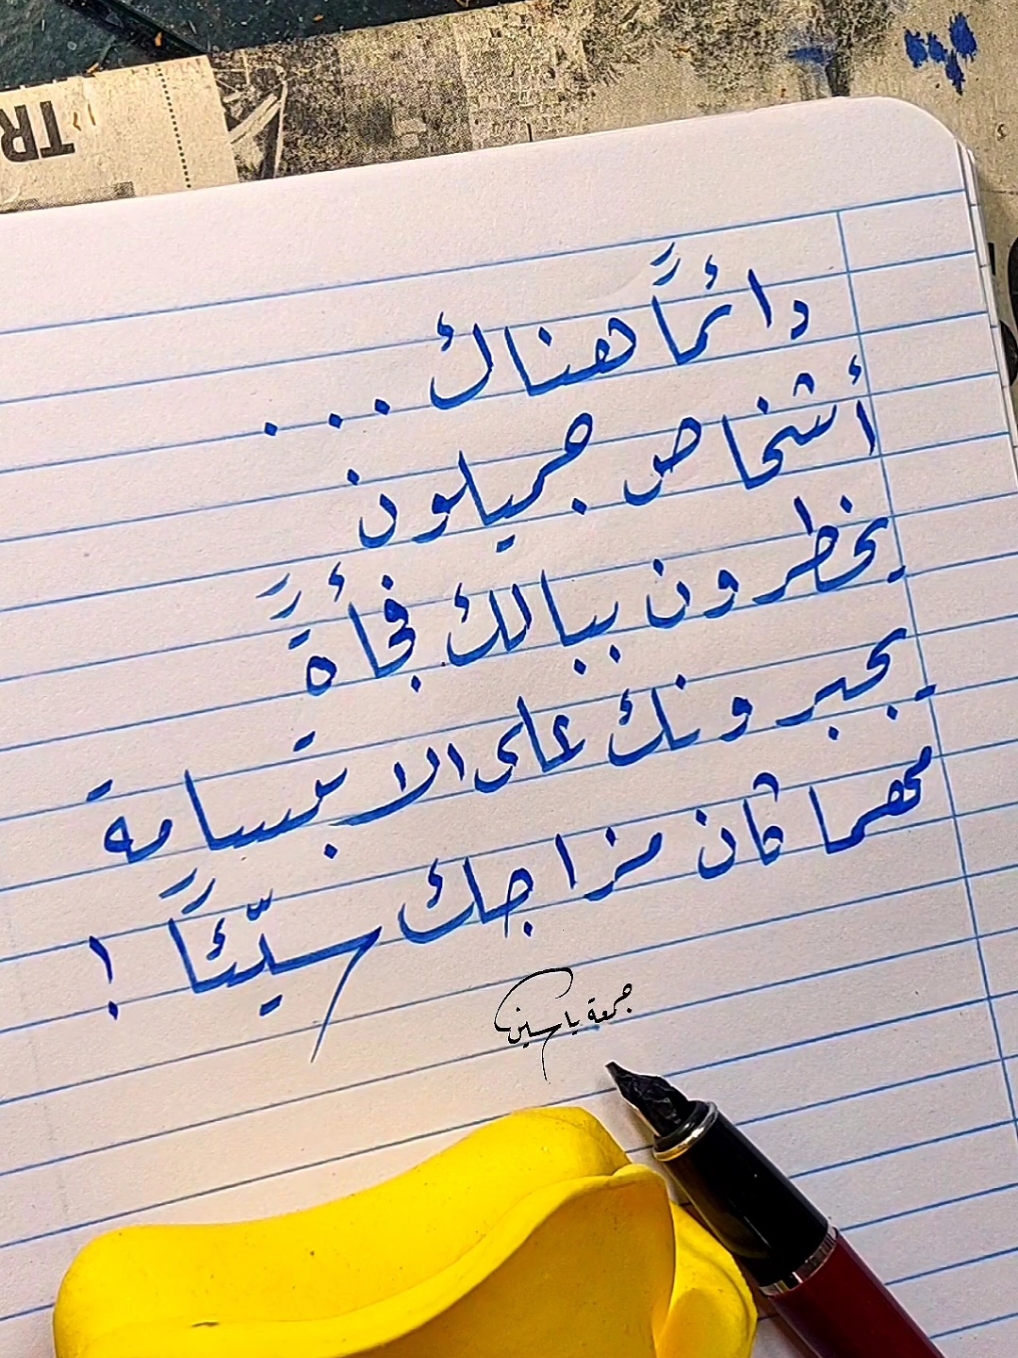 TR
دائمًا هناك . . .
أشخاص جميلون
يخطرون ببالك فجأةً
يجبرونك على الابتسامة
مهما كان مزاجك سيّئًا !
جمعة ياسين